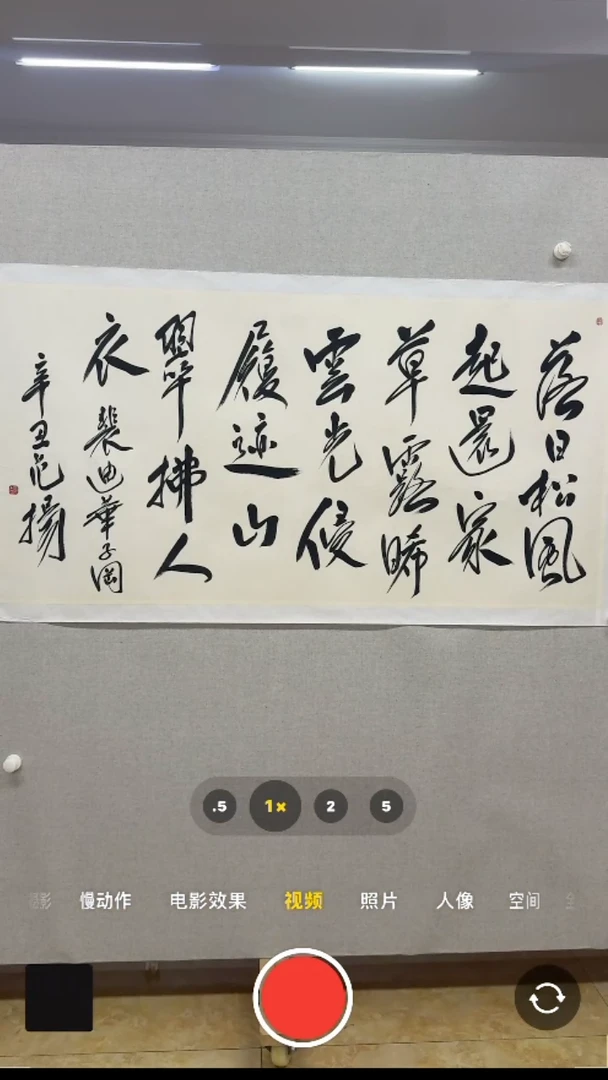 落日松風
起還家
草露晞
雲光侵
履迹山
翠拂人
衣
裴迪華子岡
辛丑范揚
.5 1× 2 5
慢动作 电影效果 视频 照片 人像 空间